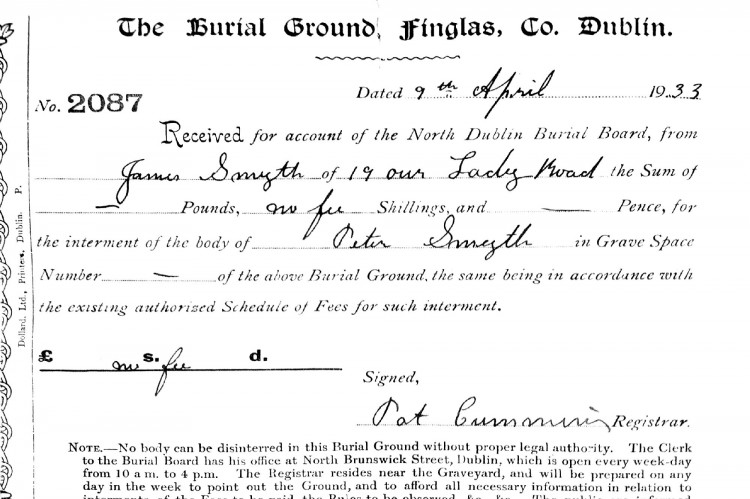 The Burial Ground, Finglas, Co. Dublin.
Dated 9th April 1933
No. 2087
Received for account of the North Dublin Burial Board, from
James Smyth of 19 our Lady Road the Sum of
— Pounds, no fee Shillings, and — Pence, for
the interment of the body of Peter Smyth in Grave Space
Number — of the above Burial Ground, the same being in accordance with
the existing authorized Schedule of Fees for such interment.
£ no s. fee d.
Signed,
Pat Cummins Registrar.
NOTE.—No body can be disinterred in this Burial Ground without proper legal authority. The Clerk
to the Burial Board has his office at North Brunswick Street, Dublin, which is open every week-day
from 10 a.m. to 4 p.m. The Registrar resides near the Graveyard, and will be prepared on any
day in the week to point out the Ground, and to afford all necessary information in relation to
Dollard, Ltd., Printers, Dublin. P.